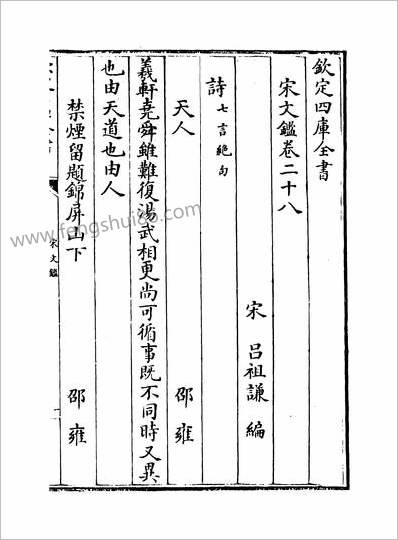 欽定四庫全書
宋文鑑卷二十八
宋 呂祖謙 編
詩 七言絶句
天人 邵雍
羲軒堯舜雖難復湯武相更尚可循事既不同時又異
也由天道也由人
禁煙留題錦屏山下 邵雍
宋文鑑
www.fengshui86.com